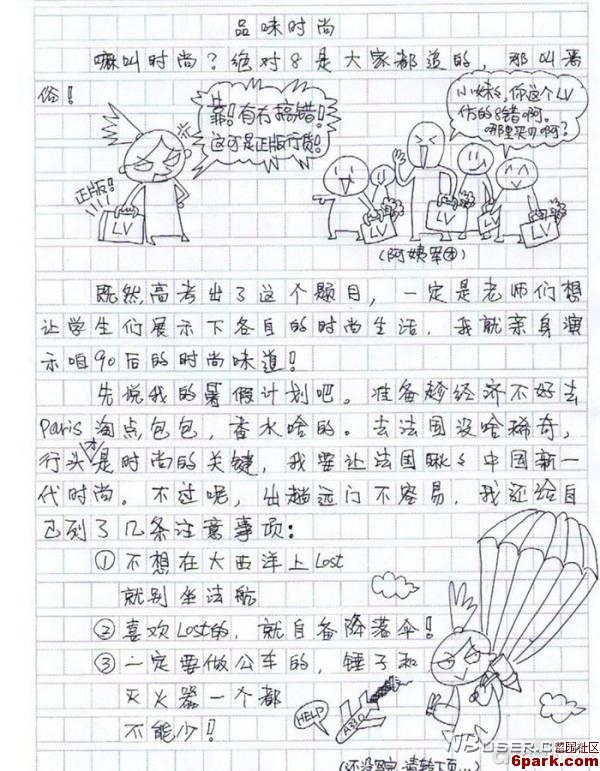 品味时尚
嘛叫时尚？绝对8是大家都追的，那叫恶
俗！
靠！有冇搞错！
这可是正版行货！
正版！
LV
小妹妹，你这个LV
仿的8错啊。
哪里买D啊？
LV
LV
LV
(阿姨军团)
既然高考出了这个题目，一定是老师们想
让学生们展示下各自的时尚生活，我就亲身演
示咱90后的时尚味道！
先说我的暑假计划吧。准备趁经济不好去
Paris淘点包包，香水啥的。去法国没啥稀奇，
行头才是时尚的关键，我要让法国瞅瞅中国新一
代时尚。不过呢，出趟远门不容易，我还给自
己列了几条注意事项：
①不想在大西洋上Lost
就别坐法航
②喜欢Lost的，就自备降落伞！
③一定要做公车的，锤子和
灭火器一个都
不能少！
HELP
(还没写完，请转下页…)
留园社区
6park.com